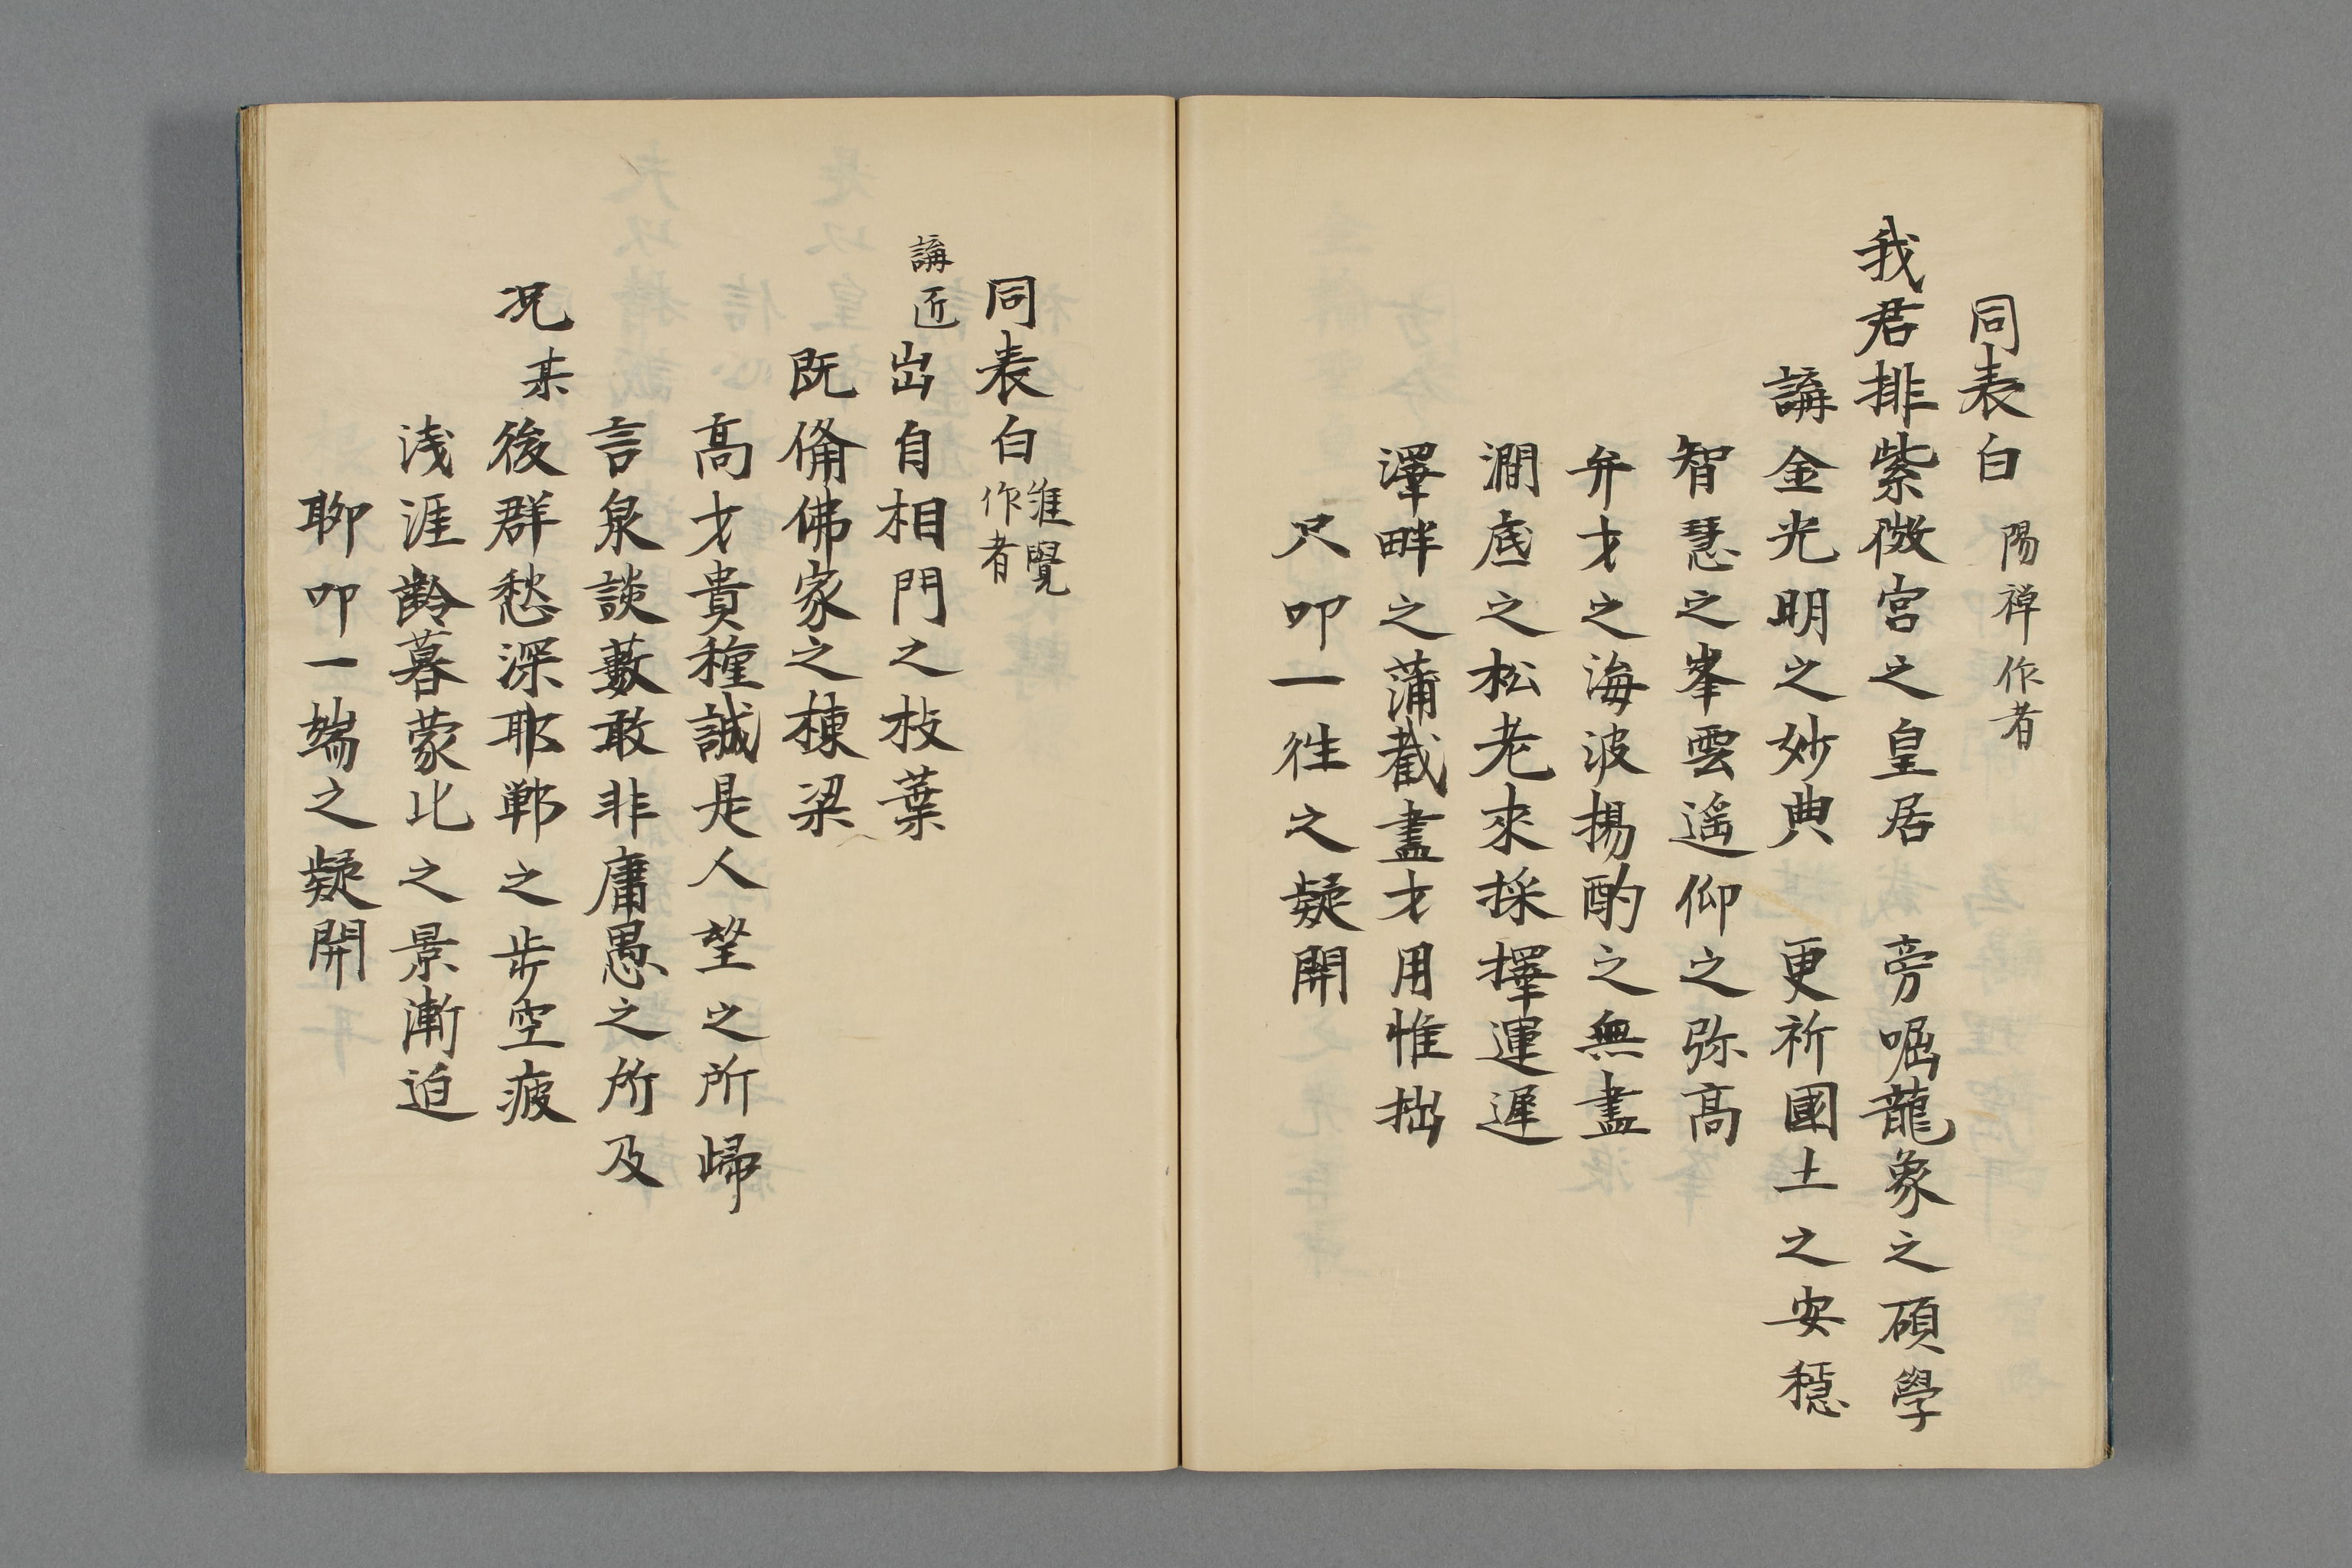 同表白 陽禅作者
我君排紫微宮之皇居 旁啒龍象之碩學
講金光明之妙典 更祈國土之安穏
智慧之峯雲遥仰之弥高
弁才之海波揚酌之無盡
澗底之松老來採擇運遅
澤畔之蒲截盡才用惟拙
尺叩一往之疑開
同表白 維覽作者
講匠出自相門之枝葉
既備佛家之棟梁
高才貴種誠是人望之所歸
言泉談藪敢非庸愚之所及
况某後群愁深耶鄲之歩空疲
浅涯齢暮蒙比之景漸迫
聊叩一端之疑開